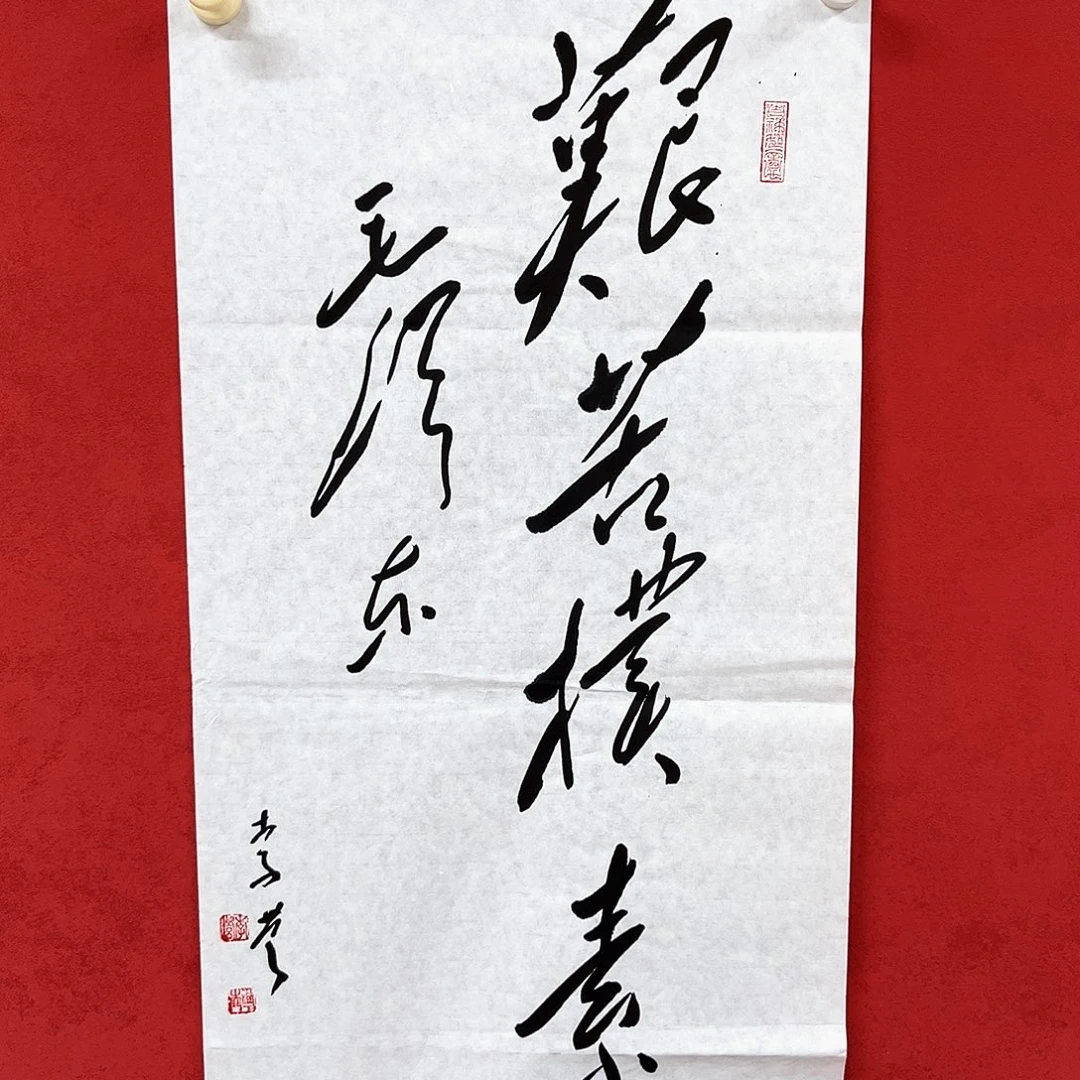 艱苦樸素
毛澤东
李